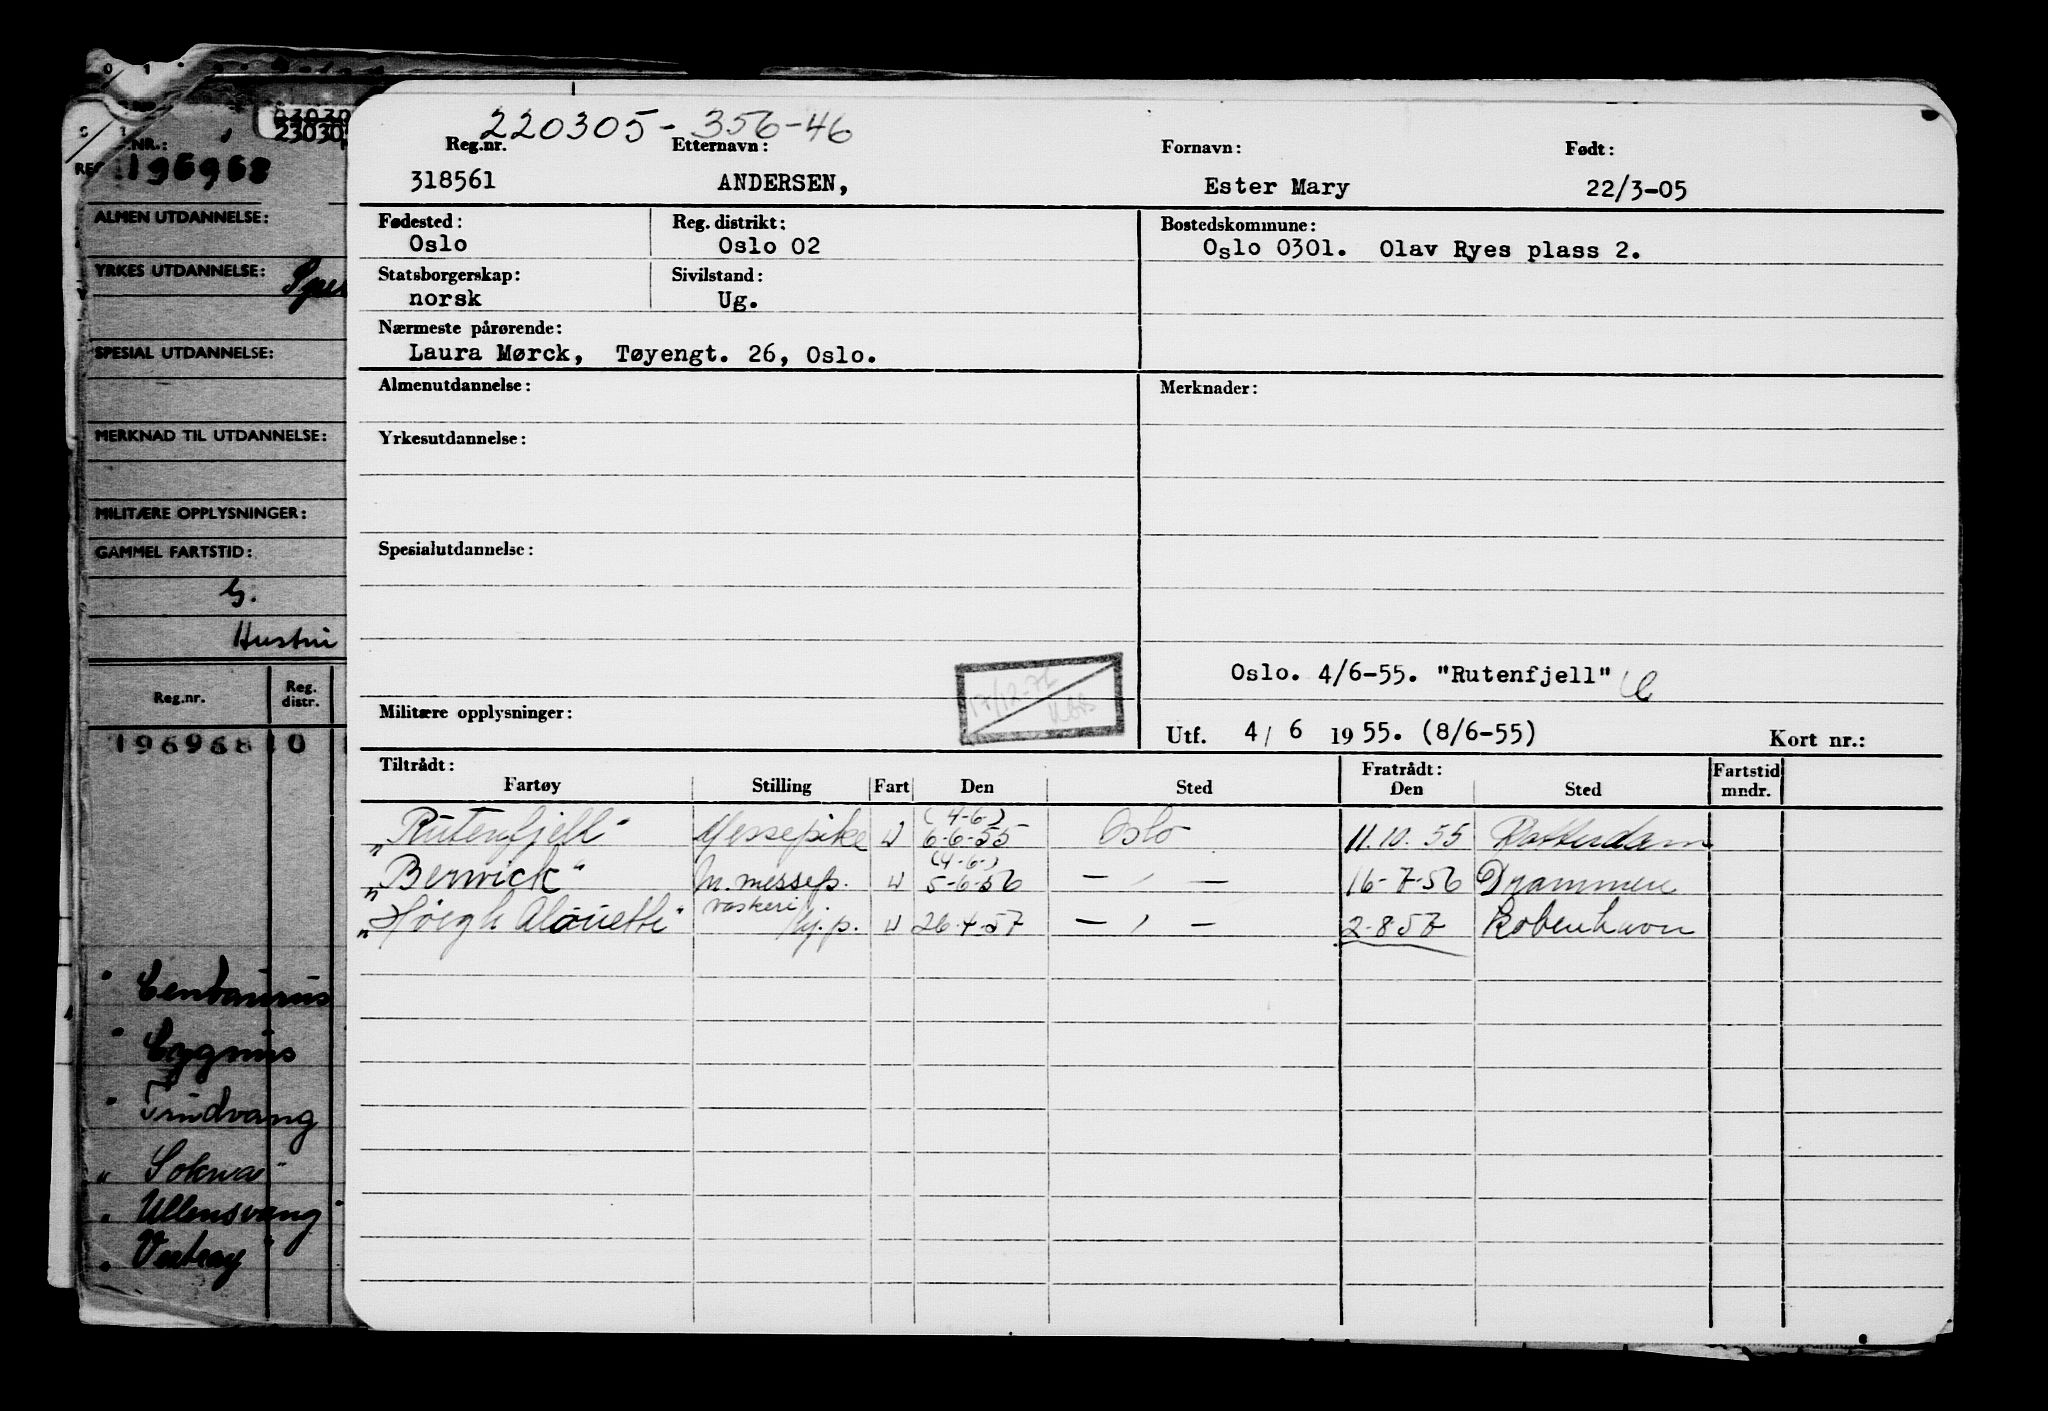 220305-356-46
Reg.nr. Etternavn: Fornavn: Født:
318561 ANDERSEN, Ester Mary 22/3-05
Fødested: Reg. distrikt: Bostedskommune:
Oslo Oslo 02 Oslo 0301. Olav Ryes plass 2.
Statsborgerskap: Sivilstand:
norsk Ug.
Nærmeste pårørende:
Laura Mørck, Tøyengt. 26, Oslo.
Almenutdannelse: Merknader:
Yrkesutdannelse:
Spesialutdannelse:
Oslo. 4/6-55. "Rutenfjell"
Militære opplysninger:
Utf. 4/ 6 1955. (8/6-55) Kort nr.:
Tiltrådt: Fratrådt: Fartstid
Fartøy Stilling Fart Den Sted Den Sted mndr.
(4-6)
"Rutenfjell" Messepike U 6-6-55 Oslo 11.10.55 Rotterdam
(4-6)
"Berwick" m. messep. U 5-6-56 — " — 16-7-56 Drammen
vaskeri
"Høegh Alouette" hj.p. U 26-4-57 — " — 2-8-57 København
23030
REG.NR.:
196968
ALMEN UTDANNELSE:
YRKES UTDANNELSE:
SPESIAL UTDANNELSE:
MERKNAD TIL UTDANNELSE:
MILITÆRE OPPLYSNINGER:
GAMMEL FARTSTID:
G.
Hustru
Reg.nr. Reg. distr.
196968 0
" Centaurus
" Cygnus
" Trudvang
" Sokna"
" Ullensvang"
" Vestray"